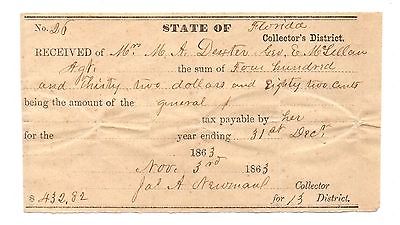 No. 26 STATE OF Florida
Collector's District.
RECEIVED of Mrs M. A. Dexter Geo. E. McLellan
Agt. the sum of Four hundred
and Thirty two dollars and Eighty two cents
being the amount of the general
tax payable by her
for the year ending 31st Decr
1863
Nov. 3rd 1863
Jas A. Newmans Collector
$ 432.82 for 13 District.